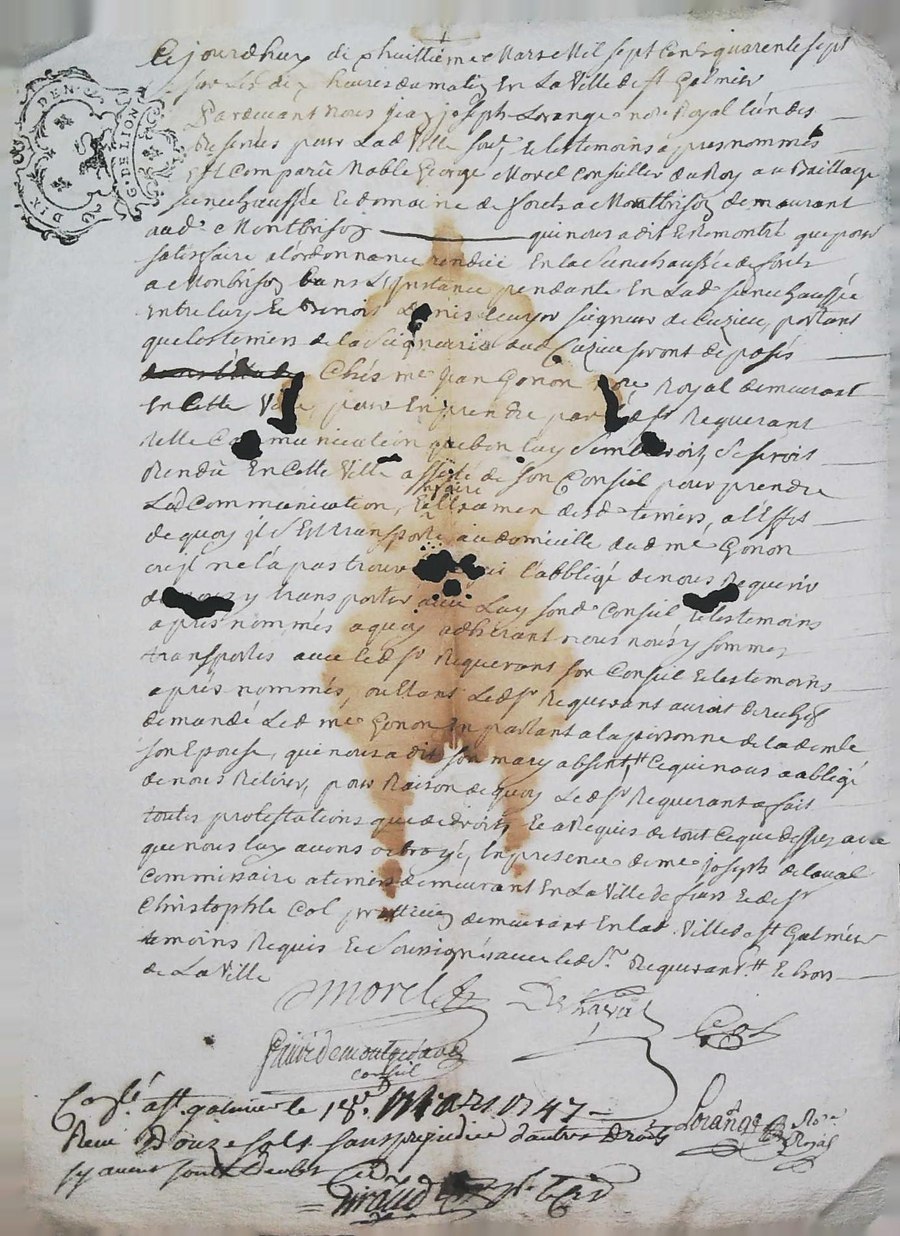 G. DE LION
DIX DEN
Ce jourdhuy dixhuittieme Mars Mil sept Cens quarente sept
sur les dix heures du matin En La Ville de st Galmier
Pardevant nous jean joseph Lorange nore Royal
Resérvés pour Lad Ville sousé, et les temoins aprés nommés
Est Comparu Noble George Morel Consiller du Roy au Bailliage
senechaussée et domaine de forets a Montbrison demeurant
aud. Montbrison qui nous a dit Et remontré que pour
satisfaire a lordonnance rendüe En la senechaussée de forets
a Monbrison dans L'instance pendante En Lad senechaussée
Entre luy Et Benoit Denis seigneur de Cuzieu, portant
que les terriers de la seigneurie dud Cuzieu seront deposés
Chés me jean Gonon nore Royal demeurant
En Cette Ville, pour En prendre par led sr Requerant
telle Communication que bon luy sembleroit, se seroit
Rendu En Cette Ville assisté de son Conseil pour prendre
Lad Communication, Et Examen desd terriers, a l'Effet
de quoy jl s'Est transporté au domicille dud me Gonon
ou jl ne l'a pas trouvé l'abbligé de nous Requerir
de nous y transporter avec Luy sond Conseil et les temoins
aprés nommés a quoy adherant nous nous y sommes
transportés avec led sr Requerant son Conseil et les temoins
aprés nommés, ou Etant Led sr Requerant auroit derechef
demandé Led me Gonon En parlant a la personne de la demlle
son Epouse, qui nous a dit son mary absent Ce qui nous a abligé
de nous Retirer, pour Raison de quoy Led sr Requerant a fait
toutes protestations que de droit, Et a Requis de tout Ce que dessus acte
que nous luy avons octroyé, En presence de me joseph delaval
Commissaire a terriers demeurant En La Ville de feurs et de sr
Christophle Col praticien demeurant En lad. Ville de st Galmier
temoins Requis Et soussignés avec led sr. Requerant Et hors
de La Ville
Morel
DeLaval
Col
Conseil
Lorange Nore
Royal
Conlé a st galmier le 18e. Mars 1747
Receu Douze sols sans prejudice d'autres Droits
sy aucuns sont Deubs
Giraud